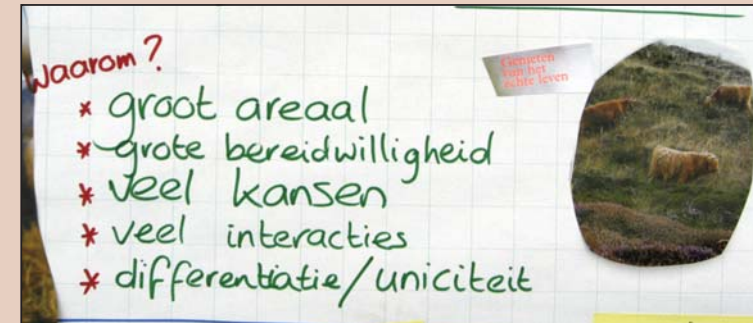 Waarom?
* groot areaal
* grote bereidwilligheid
* veel kansen
* veel interacties
* differentiatie/uniciteit
Genieten
van het
echte leven